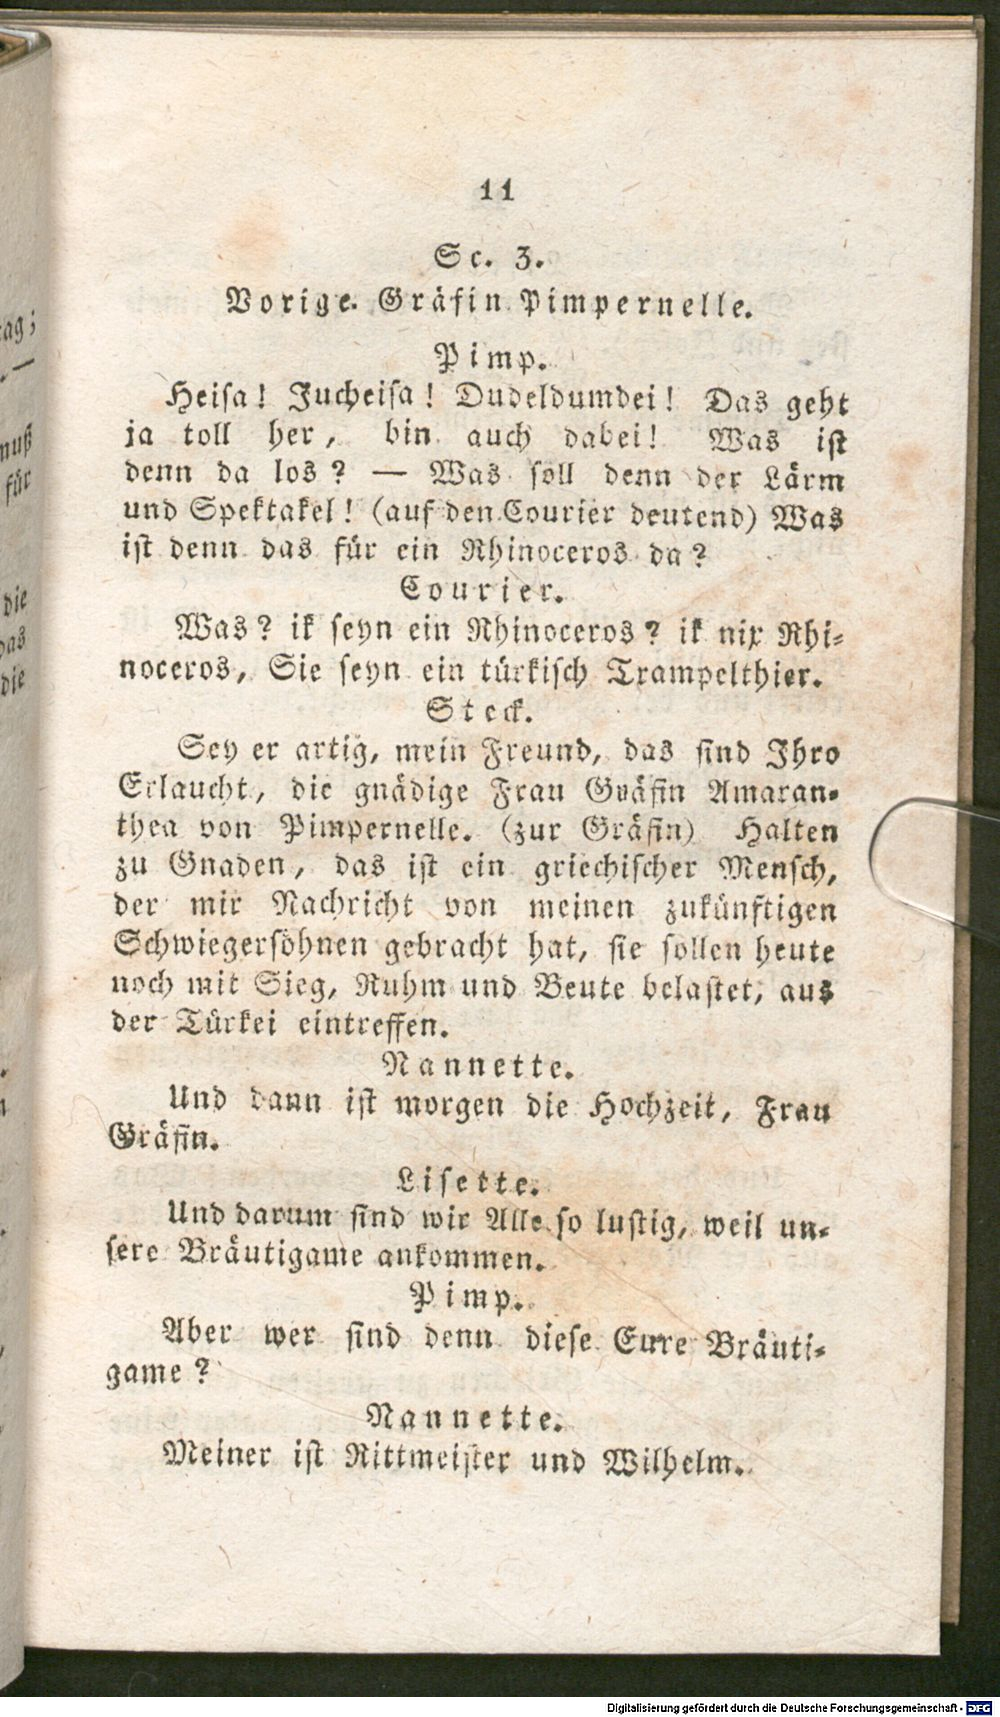 11
Sc. 3.
Vorige. Gräfin Pimpernelle.
Pimp.
Heisa! Jucheisa! Dudeldumdei! Das geht
ja toll her, bin auch dabei! Was ist
denn da los? — Was soll denn der Lärm
und Spektakel! (auf den Courier deutend) Was
ist denn das für ein Rhinoceros da?
Courier.
Was? ik seyn ein Rhinoceros? ik nix Rhi-
noceros, Sie seyn ein türkisch Trampelthier.
Steck.
Sey er artig, mein Freund, das sind Ihro
Erlaucht, die gnädige Frau Gräfin Amaran-
thea von Pimpernelle. (zur Gräfin) Halten
zu Gnaden, das ist ein griechischer Mensch,
der mir Nachricht von meinen zukünftigen
Schwiegersöhnen gebracht hat, sie sollen heute
noch mit Sieg, Ruhm und Beute belastet, aus
der Türkei eintreffen.
Nannette.
Und dann ist morgen die Hochzeit, Frau
Gräfin.
Lisette.
Und darum sind wir Alle so lustig, weil un-
sere Bräutigame ankommen.
Pimp.
Aber wer sind denn diese Eure Bräuti-
game?
Nannette.
Meiner ist Rittmeister und Wilhelm.
tag;
—
muß
für
die
das
die
Digitalisierung gefördert durch die Deutsche Forschungsgemeinschaft - DFG